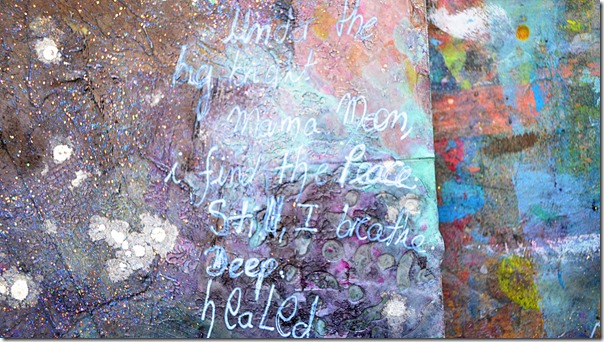 Under the
big bright
Mama Moon
i find the Peace
Still, I breathe
Deep.
healed